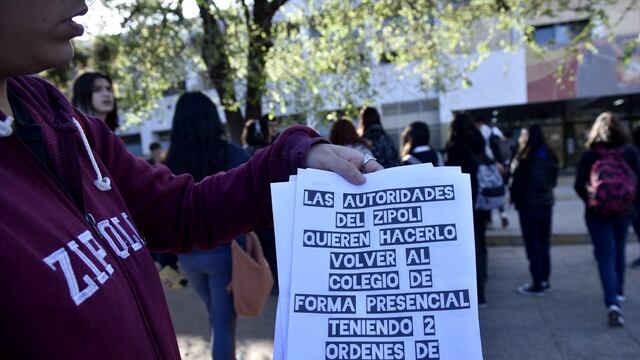 ZIPOLI
LAS AUTORIDADES
DEL ZIPOLI
QUIEREN HACERLO
VOLVER AL
COLEGIO DE
FORMA PRESENCIAL
TENIENDO 2
ORDENES DE